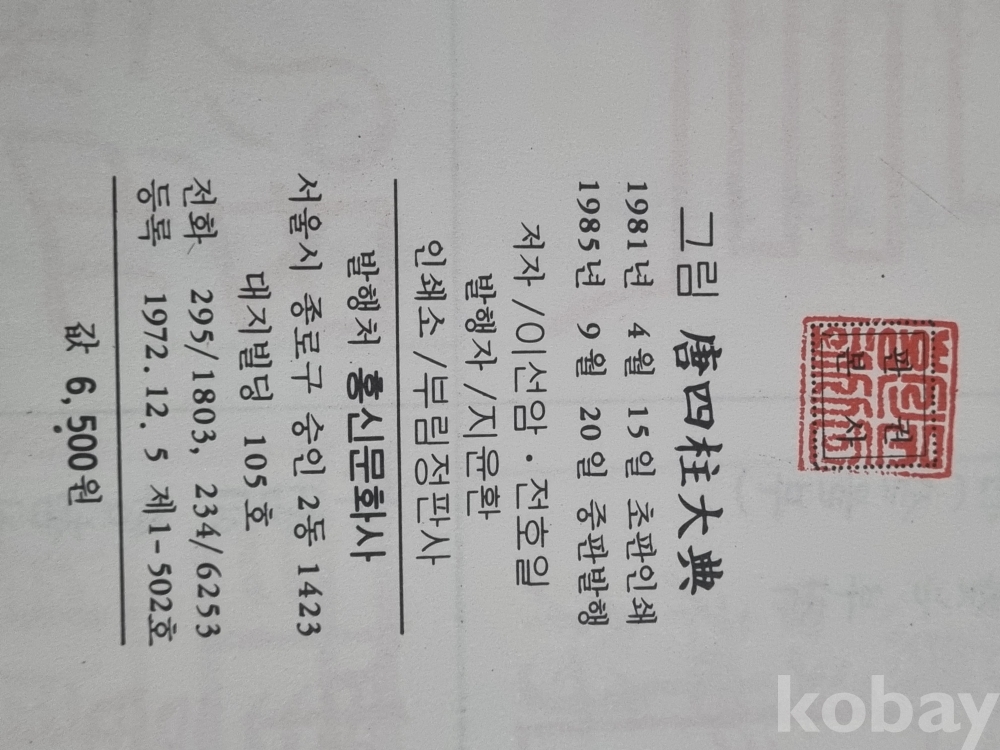 판권
본사
그림 唐四柱大典
1981년 4월 15일 초판인쇄
1985년 9월 20일 중판발행
저자 /이선암 · 전호일
발행자 /지윤환
인쇄소 /부림정판사
발행처 홍신문화사
서울시 종로구 숭인 2동 1423
대지빌딩 105호
전화 295/1803, 234/6253
등록 1972.12.5 제1-502호
값 6,500원
kobay